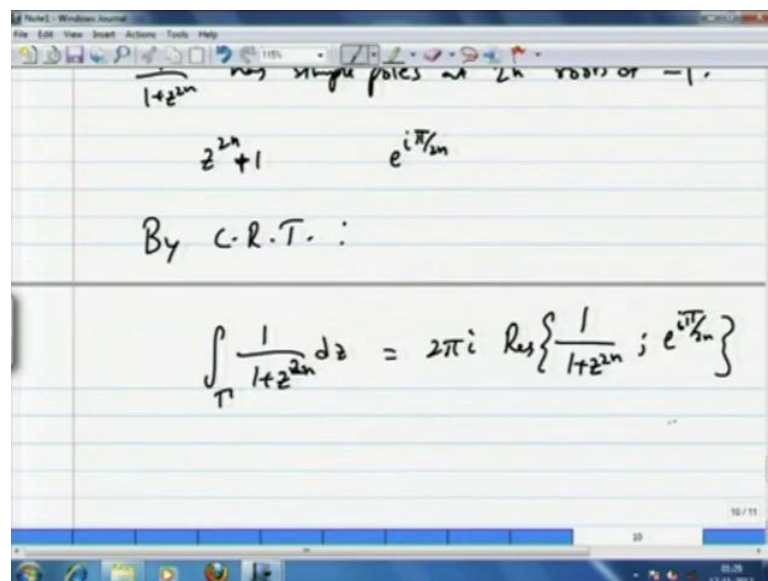 Note1 - Windows Journal
File Edit View Insert Actions Tools Help
115%
1/(1+z^{2n}) has simple poles at 2n roots of -1.
z^{2n}+1 e^{iπ/2n}
By C.R.T. :
∫_Γ 1/(1+z^{2n}) dz = 2πi Res{ 1/(1+z^{2n}) ; e^{iπ/2n} }
10 / 11
10
01:29